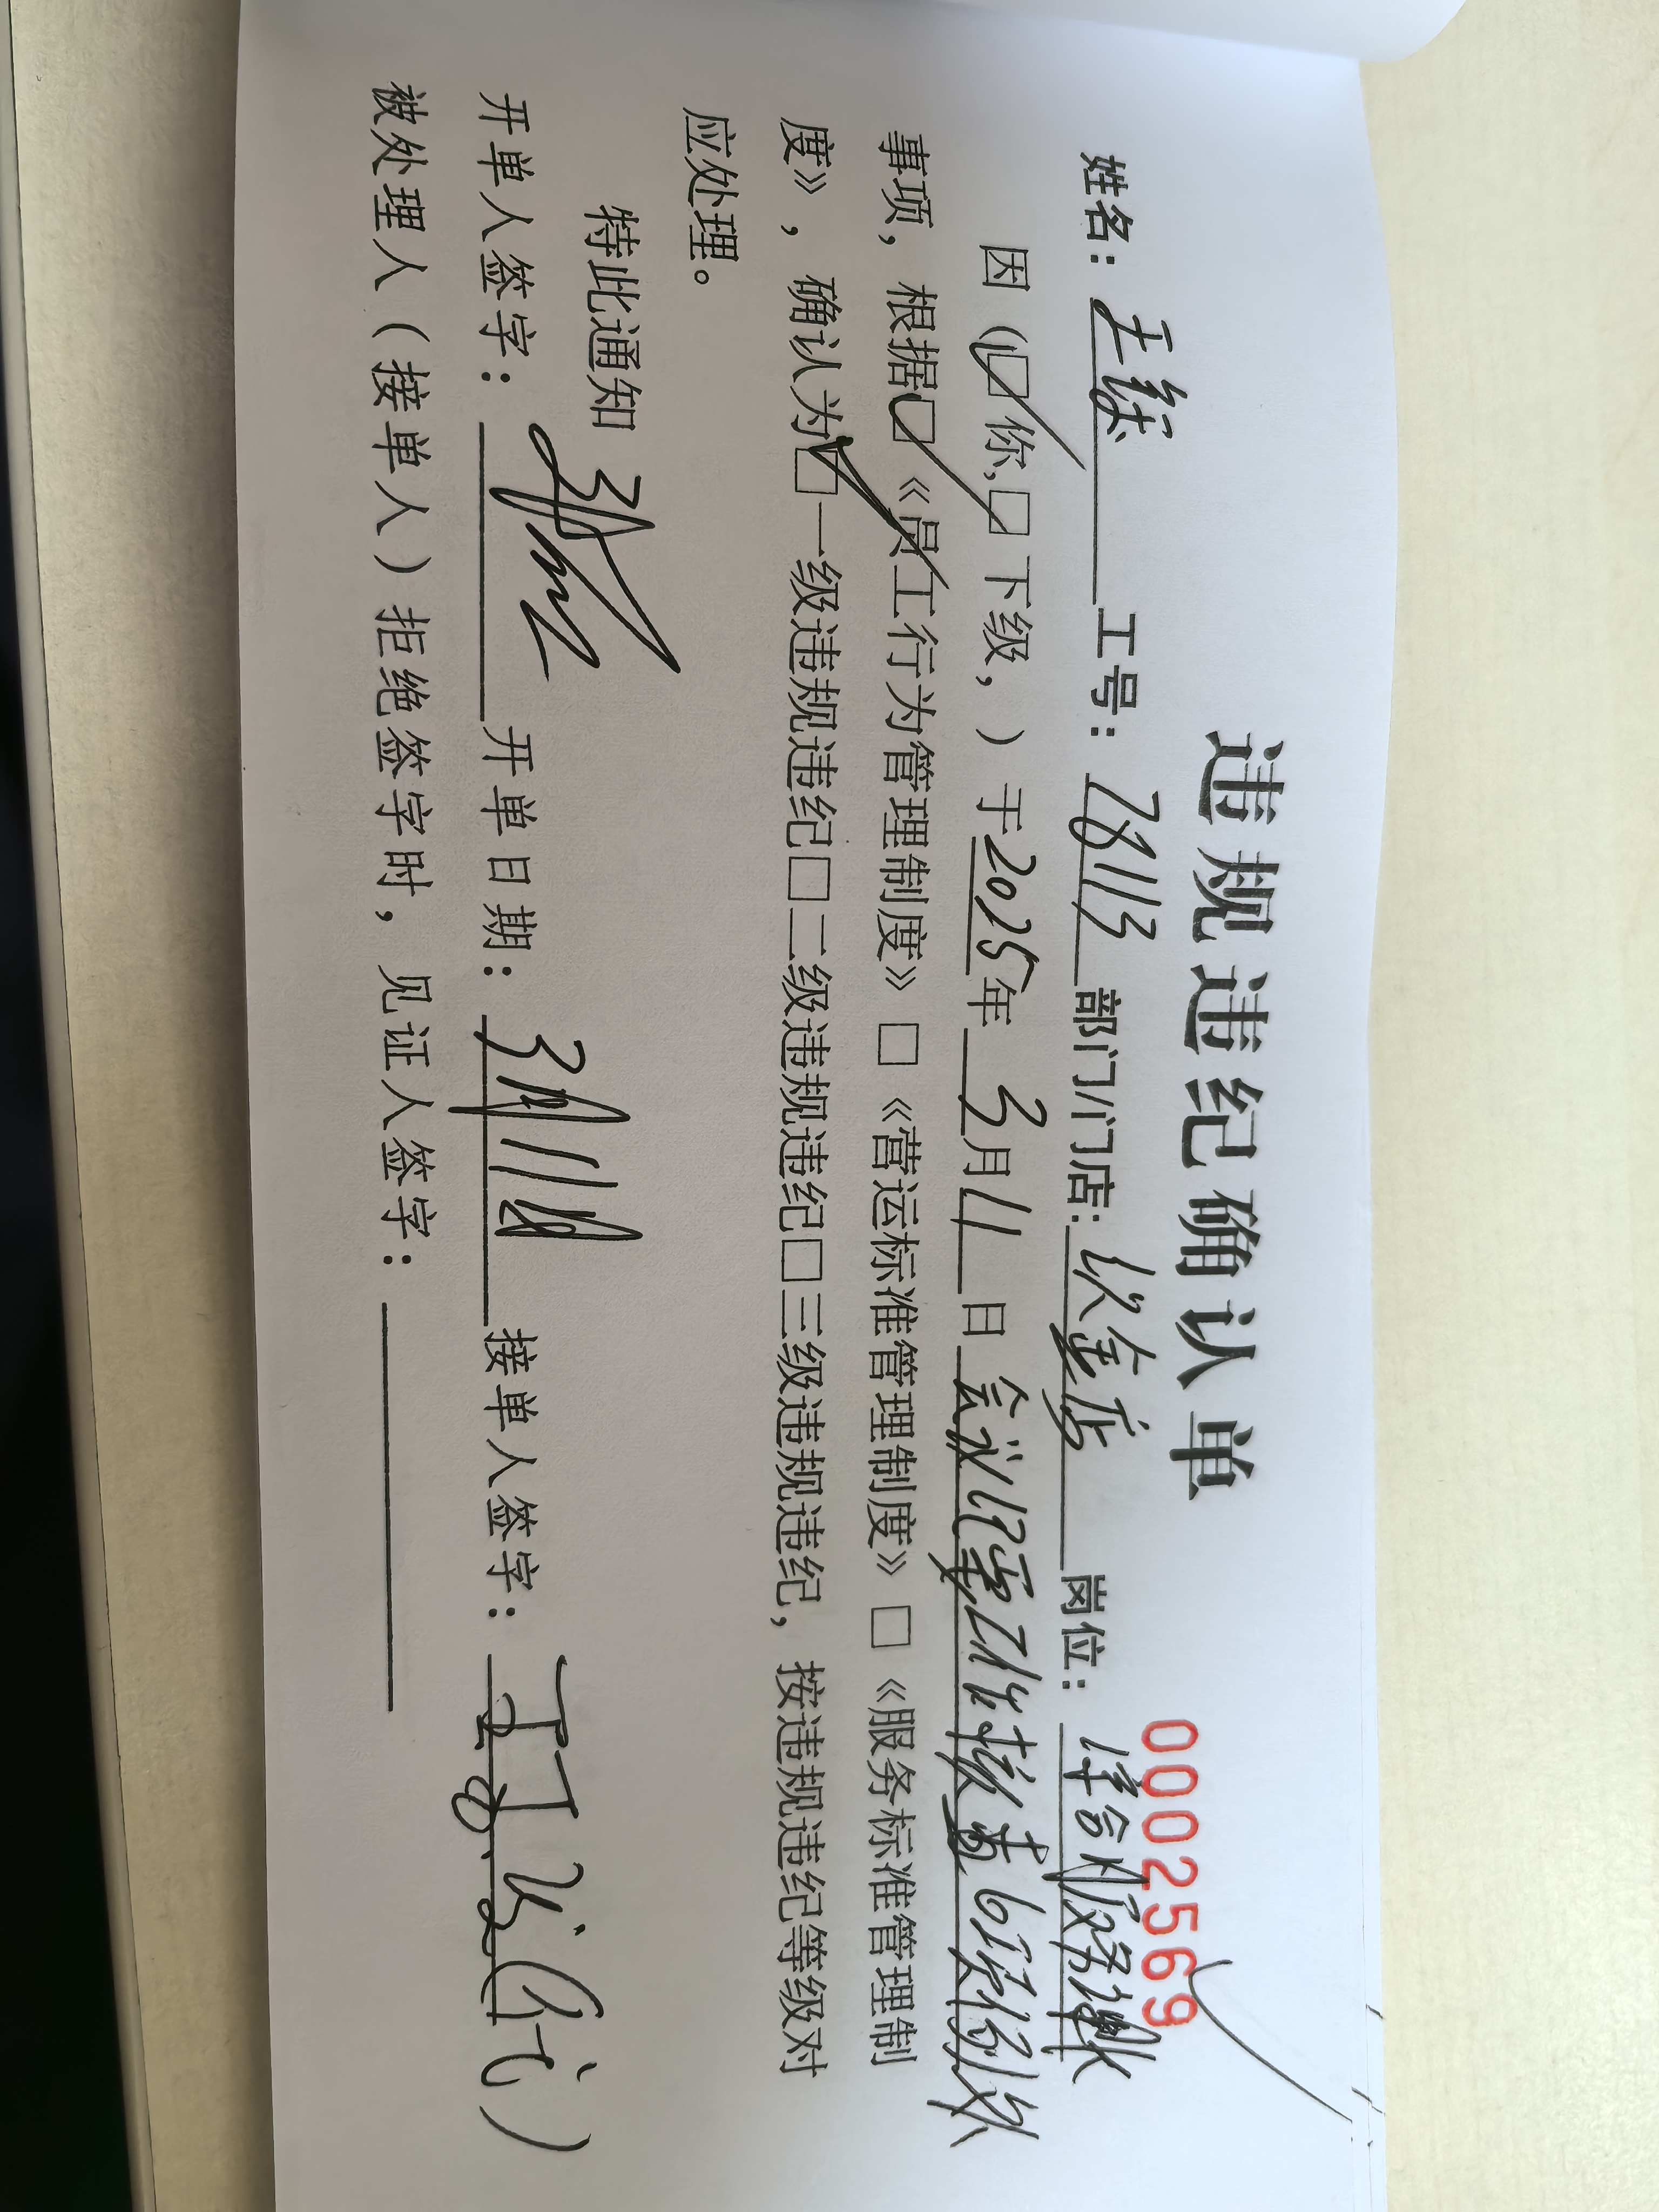 违规违纪确认单
0002569
姓名：王 工号：78113 部门/门店：金店 岗位：综合服务
因（☑你,□下级，）于2025年3月11日会议记录工作核查6项例外
事项，根据☑《员工行为管理制度》□《营运标准管理制度》□《服务标准管理制
度》，确认为☑一级违规违纪□二级违规违纪□三级违规违纪，按违规违纪等级对
应处理。
特此通知
开单人签字： 开单日期：3月11日 接单人签字：
被处理人（接单人）拒绝签字时，见证人签字：